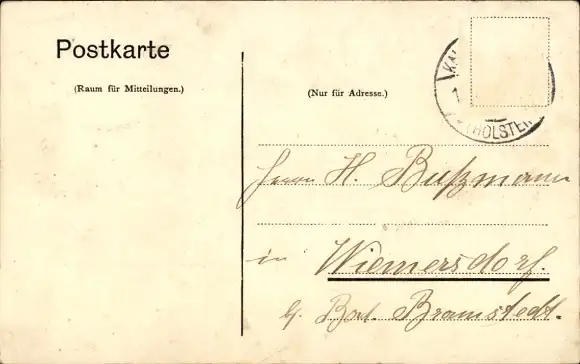 Postkarte
(Raum für Mitteilungen.)
(Nur für Adresse.)
(HOLSTE
Herrn H. Bußmann
in Wiemersdorf.
b. Bad. Bramstedt.